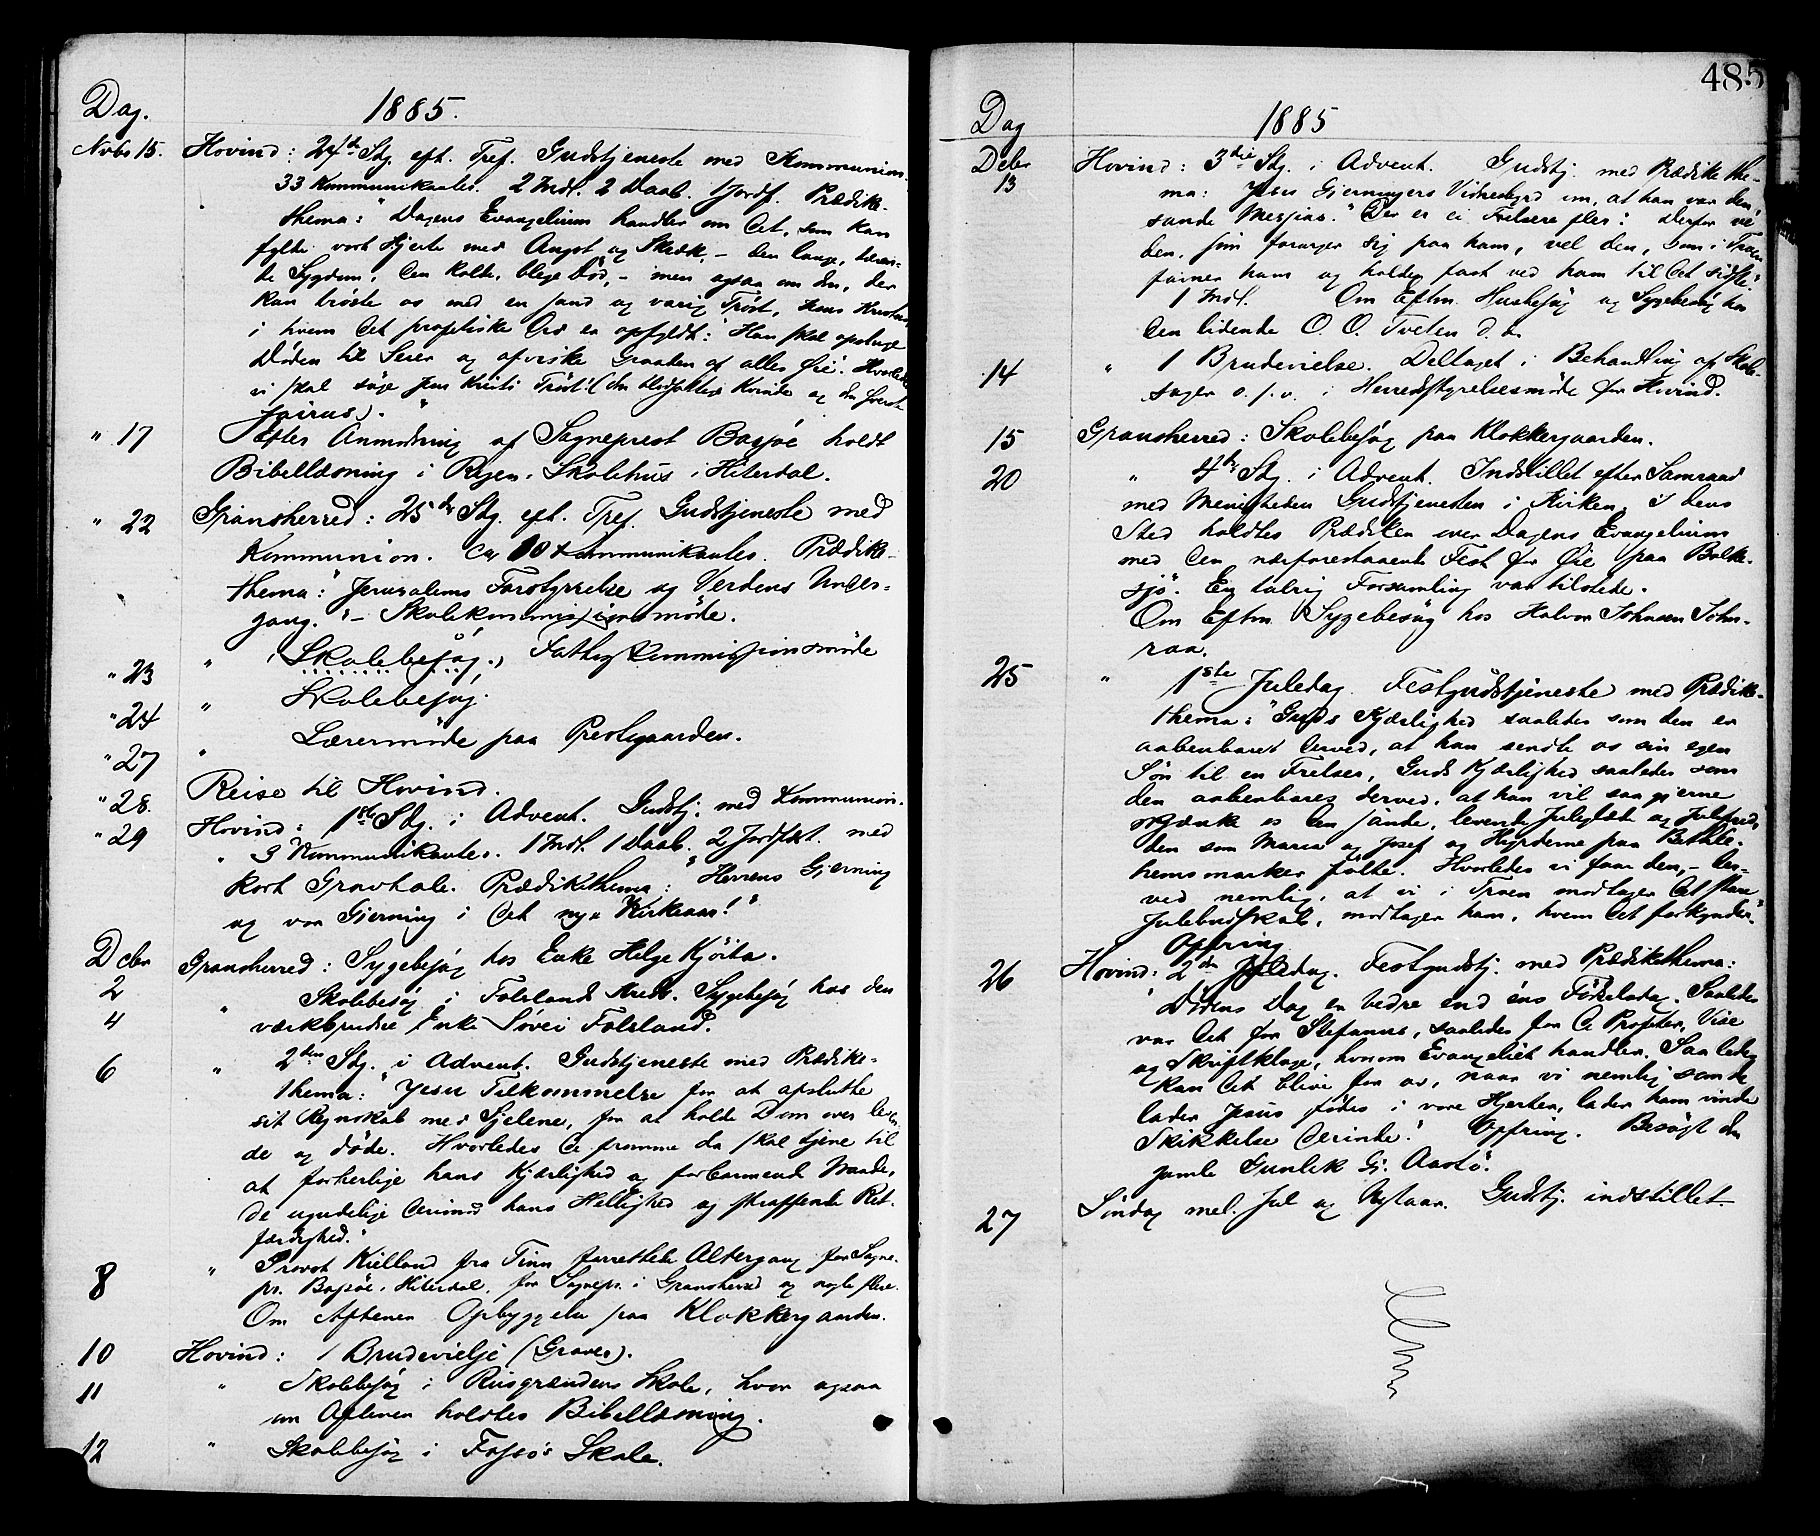 Dag. 1885.
Nvbr 15. Hovind: 24de Sdg. eft. Tref. Gudstjeneste med Kommunion.
33 Kommunikantes. 2 Indl. 2 Daab. 1 Jordf. Prædike-
thema: "Dagens Evangelium handler om det, som kan
fylde vort Hjerte med Angst og Skræk, – den lange, tæren-
de Sygdom, den kolde, blege Død, – men ogsaa om den, der
kan trøste os med en sand og varig Trøst, Jesus Kristus,
i hvem det profetiske Ord er opfyldt: "Han skal opsluge
Døden til Seier og afviske Graaden af alles Øie". Hvorledes
vi skal søge Jesu Kristi Trøst! (den blodsottige Kvinde og den Øverste
Jairus)."
" 17 Efter Anmodning af Sogneprest Bassøe holdt
Bibellæsning i Rygen Skolehus i Hiterdal.
" 22 Gransherred: 25de Sdg. eft. Tref. Gudstjeneste med
Kommunion. Ca 80 Kommunikantes. Prædike-
thema: "Jerusalems Forstyrrelse og Verdens Under-
gang." – Skolekommissionsmøde.
" 23 " (Skolebesøg.) Fattigkommissionsmøde
" 24 " Skolebesøg.
" 27 " Lærermøde paa Prestgaarden.
" 28. Reise til Hovind.
" 29 Hovind: 1ste Sdg. i Advent. Gudstj. med Kommunion.
" 3 Kommunikantes. 1 Indl. 1 Daab. 2 Jordfkt. med
kort Gravtale. Prædikethema: "Herrens Gjerning
og vor Gjerning i det nye Kirkeaar!"
Dcbr
2 Gransherred: Sygebesøg hos Enke Helge Kjøita.
4 " Skolebesøg i Folslands Kreds. Sygebesøg hos den
værkbrudne Enke Søvei Folsland.
6 " 2den Sdg. i Advent. Gudstjeneste med Prædike-
thema: "Jesu Tilkommelse for at afslutte
sit Regnskab med Sjelene, for at holde Dom over leven
de og døde. Hvorledes de fromme da skal tjene til
at forherlige hans Kjærlighed og forbarmende Naade,
de ugudelige derimod hans Hellighed og straffende Ret-
færdighed."
8 " Provst Kielland fra Tinn forrettede Altergang for Sogne-
pr. Bassøe, Hiterdal, for Sognepr. i Gransherred og nogle flere.
Om Aftenen Opbyggelse paa Klokkergaarden.
10 Hovind: 1 Brudevielse (Graver).
11 " Skolebesøg i Rusgrændens Skole, hvor ogsaa
om Aftenen holdtes Bibellæsning.
12 " Skolebesøg i Fossø's Skole.
485
Dag 1885
Debr
13 Hovind: 3die Sdg. i Advent. Gudstj. med Prædikethe-
ma: "Jesu Gjerningers Vidnesbyrd om, at han var den
sande Messias." Der er ei Frelsere fler: derfor ve
den, som forarger sig paa ham, vel den, som i Troen
favner ham og holder fast ved ham til det sidste".
1 Indl. Om Eftm. Husbesøg og Sygebesøg hos
den lidende O. O. Tveten d. æ.
14 " 1 Brudevielse. Deltaget i Behandling af Skole-
sager o. s. v. i Herredstyrelsesmøde for Hovind.
15 Gransherred: Skolebesøg paa Klokkergaarden.
20 " 4de Sdg. i Advent. Indstillet efter Samraad
med Menigheden Gudstjenesten i Kirken. I dens
Sted holdtes Prædiken over Dagens Evangelium
med den nærforestaaende Fest for Øie paa Bolke-
sjø. En talrig Forsamling var tilstede.
Om Eftm Sygebesøg hos Halvor Johnsen John-
raa.
25 " 1ste Juledag. Festgudstjeneste med Prædike-
thema: "Guds Kjærlighed saaledes som den er
aabenbaret derved, at han sendte os sin egen
Søn til en Frelser, Guds Kjærlighed saaledes som
den aabenbares derved, at han vil saa gjerne
skjænke os den sande, levende Juleglæde og Julefred,
den som Maria og Josef og Hyrderne paa Bethle-
hemsmarker følte. Hvorledes vi faar den, – der-
ved nemlig, at vi i Troen modtager det store
Julebudskab, modtager ham, hvem det forkynder."
Offring
26 Hovind: 2den Juledag. Festgudstj. med Prædikethema:
"Dødens Dag er bedre end éns Fødselsdag. Saaledes
var det for Stefanus, saaledes for de Profeter, Vise
og Skriftkloge, hvorom Evangeliet handler. Saaledes
kan det blive for os, naar vi nemlig sande
lader Jesus fødes i vore Hjerter, lader ham vinde
Skikkelse derinde." Offring. Besøgt den
gamle Gunlek Gj. Aastø.
27 Søndag mel. Jul og Nytaar. Gudstj. indstillet.